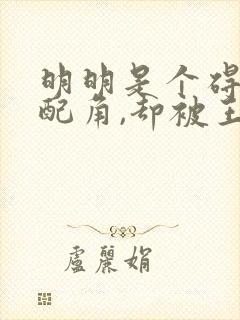 明明是个碍
配角,却被主
盧麗娟